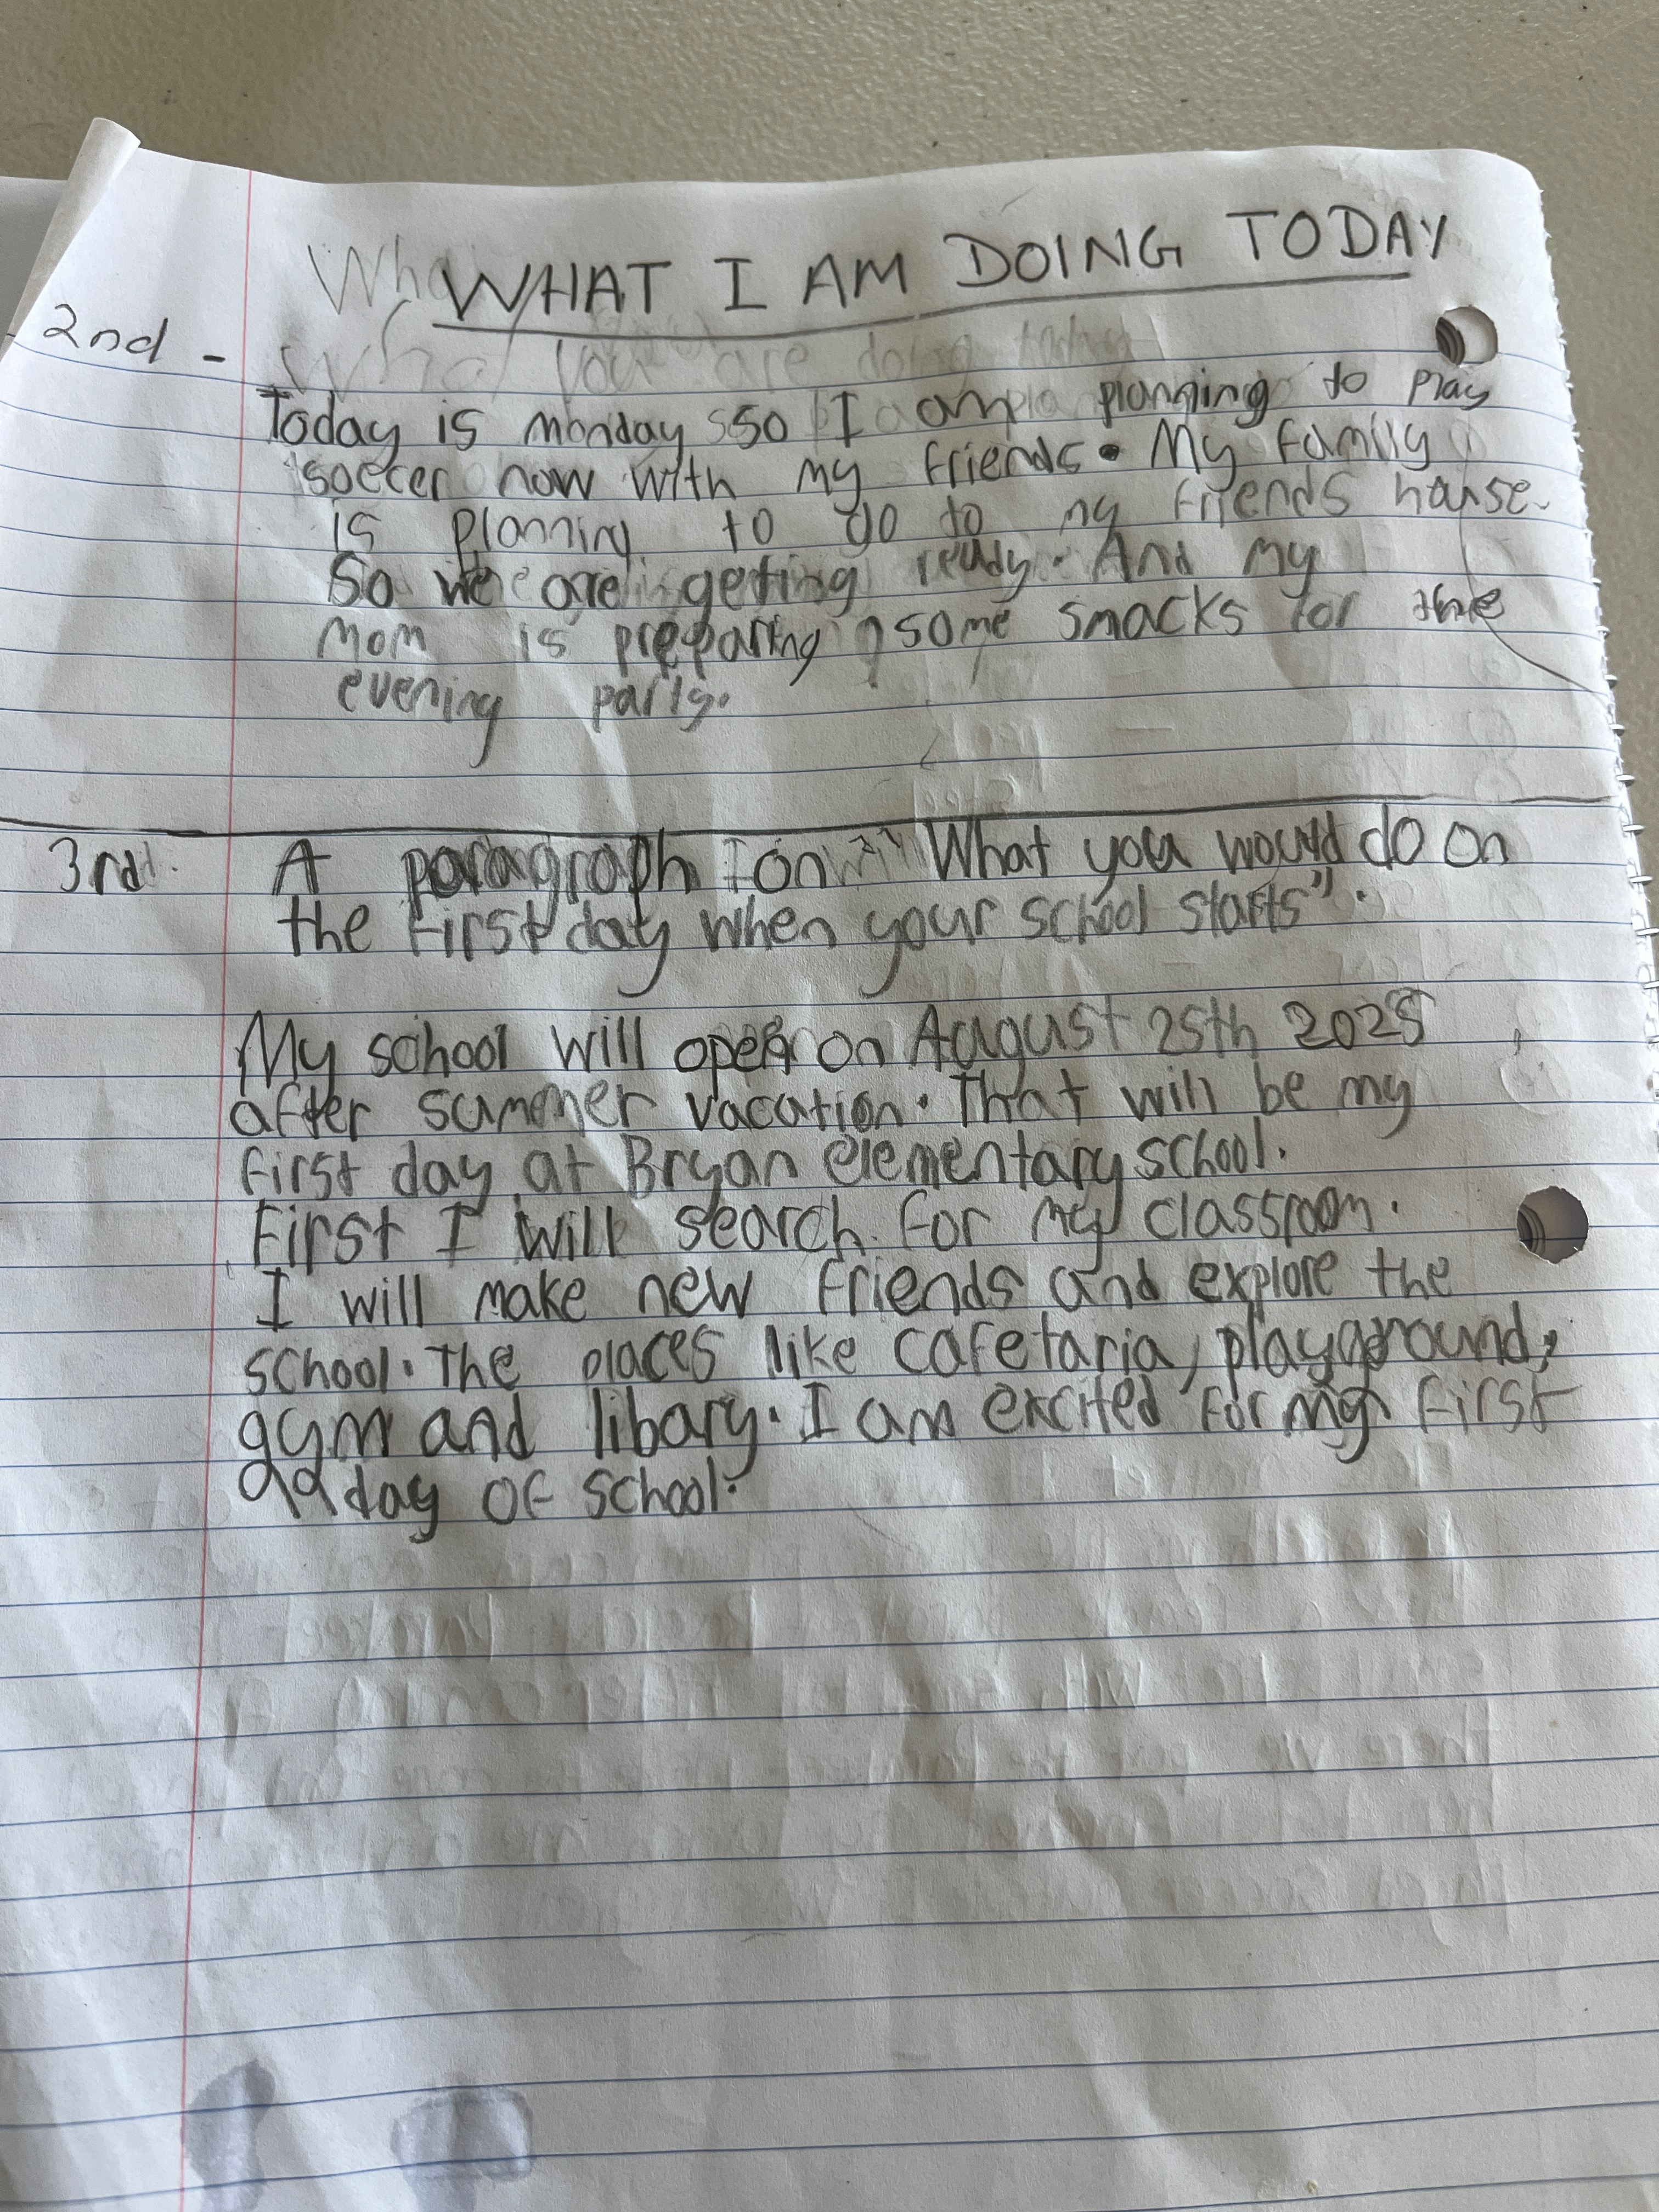 WHAT I AM DOING TODAY
2nd -
What you are doing today
Today is monday so I am planning to play
soccer now with my friends. My family
is planning to go to my friends house.
So we are geting ready. And my
mom is preparing some snacks for the
evening party.
3rd. A paragraph on "What you would do on
the first day when your school starts".
My school will open on August 25th 2025
after summer vacation. That will be my
first day at Bryan elementary school.
First I will search for my classroom.
I will make new friends and explore the
school. The places like cafetaria, playground,
gym and libary. I am excited for my first
day of school.